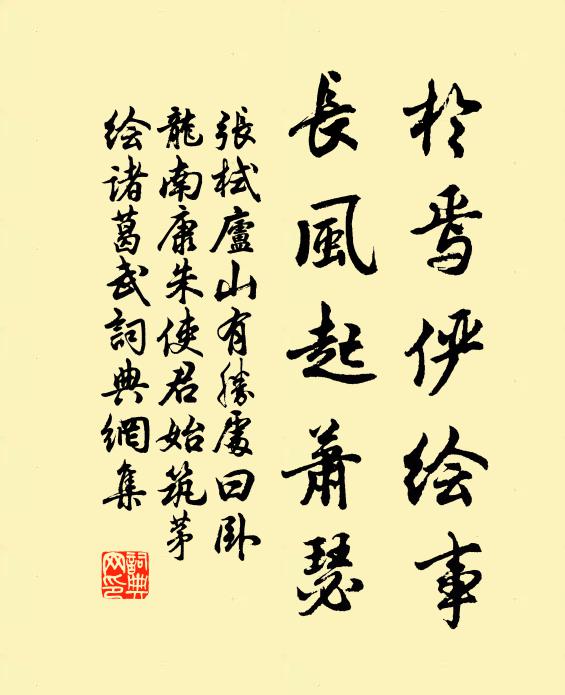 於焉俨绘事
長風起蕭瑟
張栻廬山有勝處曰卧
龍南康朱使君始筑茅
绘诸葛武詞典網集
詞典網印